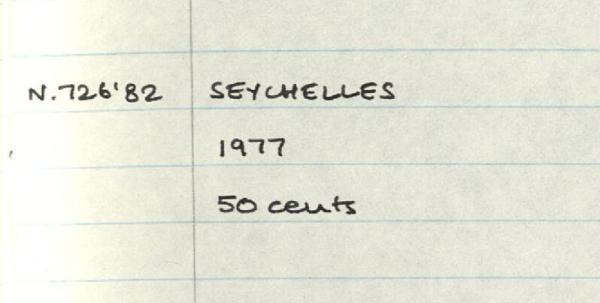 N.726'82 SEYCHELLES
1977
50 cents